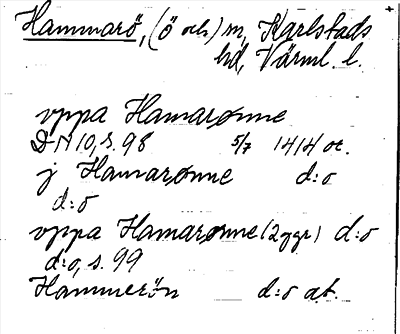 Hammarö, (ö och) sn, Karlstads
hd, Värml. l.
vppa Hamarønne
DN 10, s. 98 5/7 1414 or.
j Hamarønne d:o
d:o
vppa Hamarønne (2 ggr) d:o
d:o, s. 99
Hammerön d:o a.t.